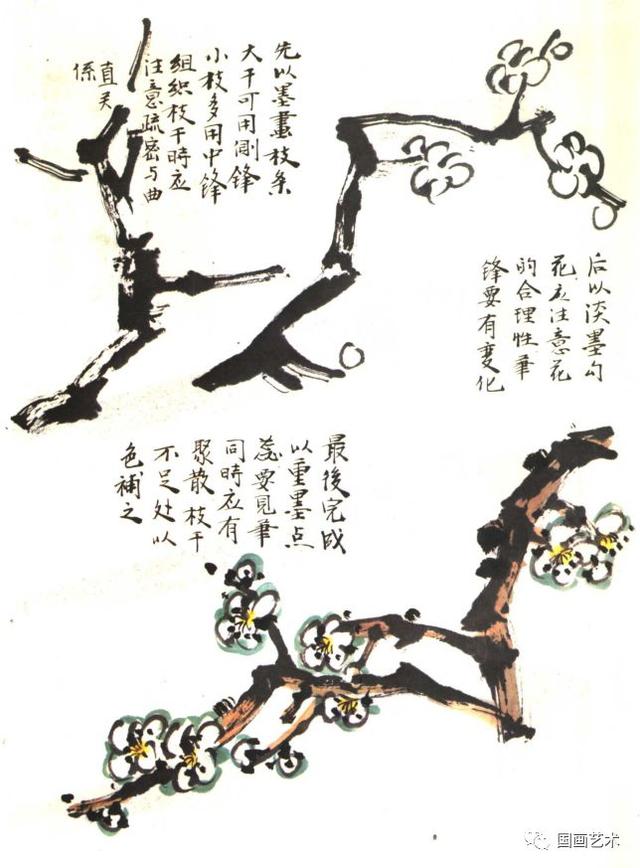 先以墨畫枝条
大干可用側锋
小枝多用中锋
组织枝干時应
注意疏密与曲
直关
係
后以淡墨勾
花应注意花
的合理性笔
锋要有变化
最後完成
以重墨点
蕊要见笔
同時应有
聚散枝干
不足处以
色補之
国画艺术